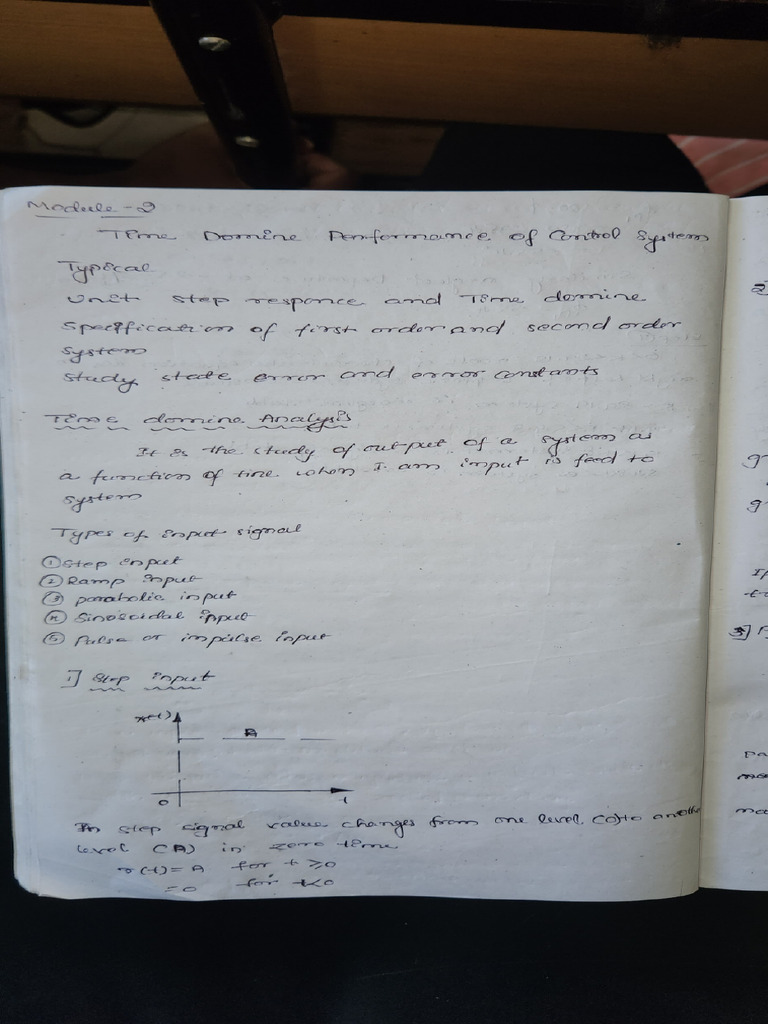 Module - 2
Time Domine Performance of Control System
Typical
Unit step responce and Time domine
specification of first order and second order
system
study state error and error constants
Time domine Analysis
It is the study of output of a system as
a function of time when I am input is feed to
system
Types of input signal
① Step input
② Ramp input
③ parabolic input
④ Sinosoidal input
⑤ Pulse or impulse input
1] Step input
r(t)
A
0 t
In step signal value changes from one level (0) to another
level (A) in zero time
r(t) = A for t ≥ 0
= 0 for t < 0